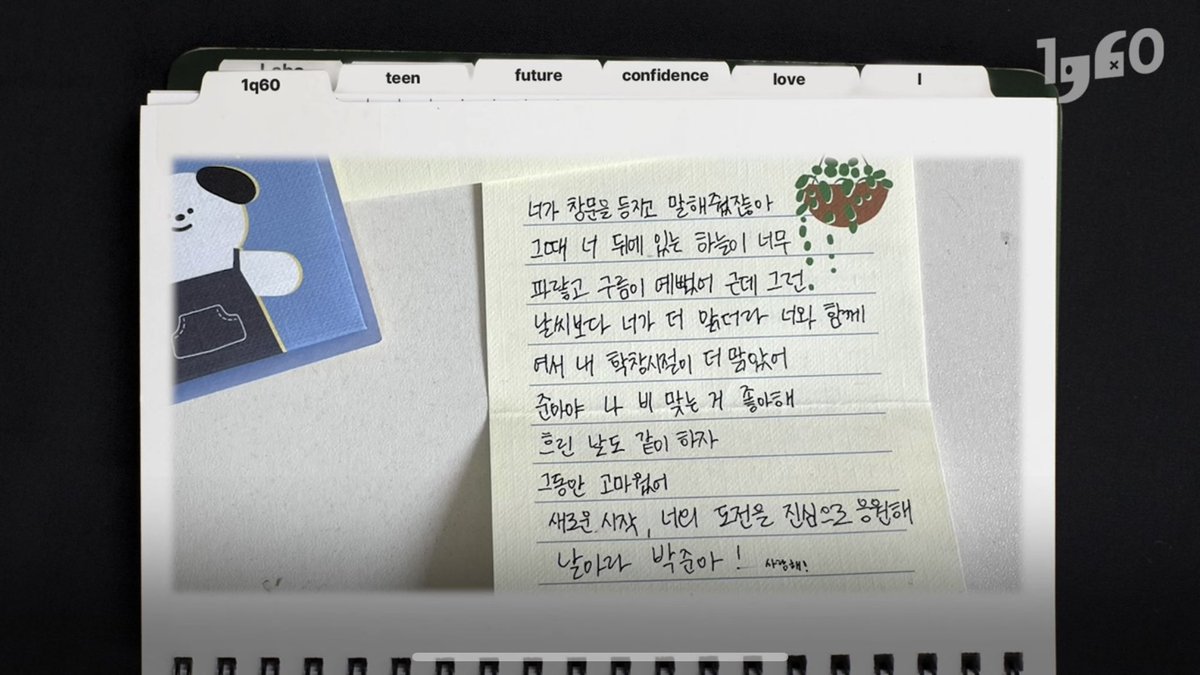 1q60
1q60
teen
future
confidence
love
I
너가 창문을 등지고 말해줬잖아
그때 너 뒤에 있는 하늘이 너무
파랗고 구름이 예뻤어 근데 그런
날씨보다 너가 더 맑더라 너와 함께
여서 내 학창시절이 더 맑았어
준아야 나 비 맞는 거 좋아해
흐린 날도 같이 하자
그동안 고마웠어
새로운 시작, 너의 도전을 진심으로 응원해
날아라 박준아! 사랑해!